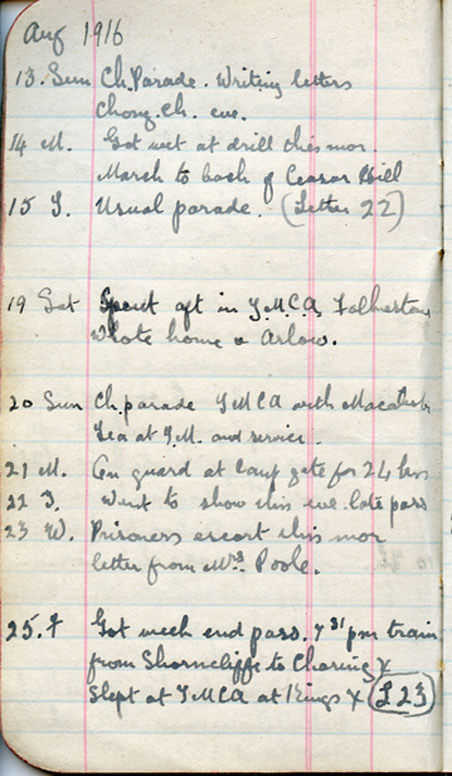 Aug 1916
13. Sun Ch. Parade. Writing letters
Chong. Ch. eve.
14 M. Got wet at drill this mor.
March to back of Ceasar Hill
15 T. Usual parade. (Letter 22)
19 Sat Spent aft in Y.M.C.A. Folkestone
Wrote home & Arlow.
20 Sun Ch. parade YMCA with
Tea at Y.M. and service.
21 M. On guard at camp gate for 24 hrs
22 T. Went to show this eve. late pass
23 W. Prisoners escort this mor
letter from Mrs. Poole.
25. F Got week end pass. 7 31 pm train
from Shorncliffe to Charing X
Slept at YMCA at Kings X (L 23)